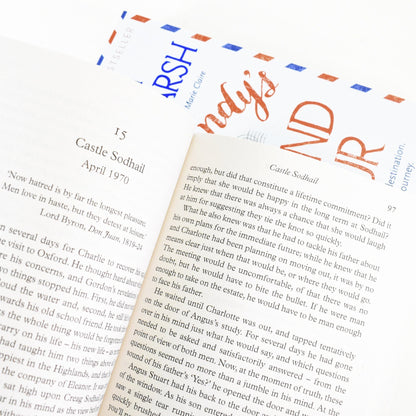 BESTSELLER
MARSH
Marie Claire
ndy's
ND
UR
destination.
ourney.
15
Castle Sodhail
April 1970
'Now hatred is by far the longest pleasure;
Men love in haste, but they detest at leisure.'
Lord Byron, Don Juan, 1818-24
several days for Charlie to recover
visit to Oxford. He thought hard
ere his concerns, and Gordon's
two things stopped him. First, he did
loud the water, and second, he still
wards his old school friend. He told
s the whole thing would be forgotten
carry on his life – his new life – a
had taught him two things above
ppiest in the Highlands, and that
the company of Eleanor. It was
sat high upon Creag Sodhail
r in his mind as the view
Castle Sodhail
97
enough, but did that constitute a lifetime commitment? Did it
imply that she would be happy in the long term at Sodhail?
He knew that there was always a chance that she would laugh
at him for suggesting they tie the knot so quickly.
What he also knew was that he had to tackle his father about
his own plans for the immediate future; while he knew that he
and Charlotte had been planning on moving out, it was by no
means clear just when that would be, or where they would go.
The meeting would be uncomfortable, of that there was no
doubt, but he would have to bite the bullet. If he were man
enough to take on the estate, he would have to be man enough
to face his father.
He waited until Charlotte was out, and tapped tentatively
on the door of Angus's study. For several days he had gone
over in his mind just what he would say, and which questions
needed to be asked and satisfactorily answered – from the
point of view of both men. Now, at the moment of truth, the
questions seemed no more than a jumble in his mind. At the
sound of his father's 'Yes?' he opened the door and
Angus Stuart had his back to the door
of the window. As his son entered
saw a single tear running
quickly brushed
'You'll